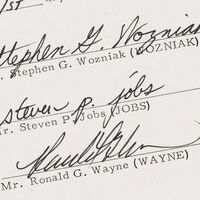 1ST
Stephen G. Wozniak
Stephen G. Wozniak (WOZNIAK)
steven p. jobs
Mr. Steven P. Jobs (JOBS)
Ronald G. Wayne
Mr. Ronald G. Wayne (WAYNE)